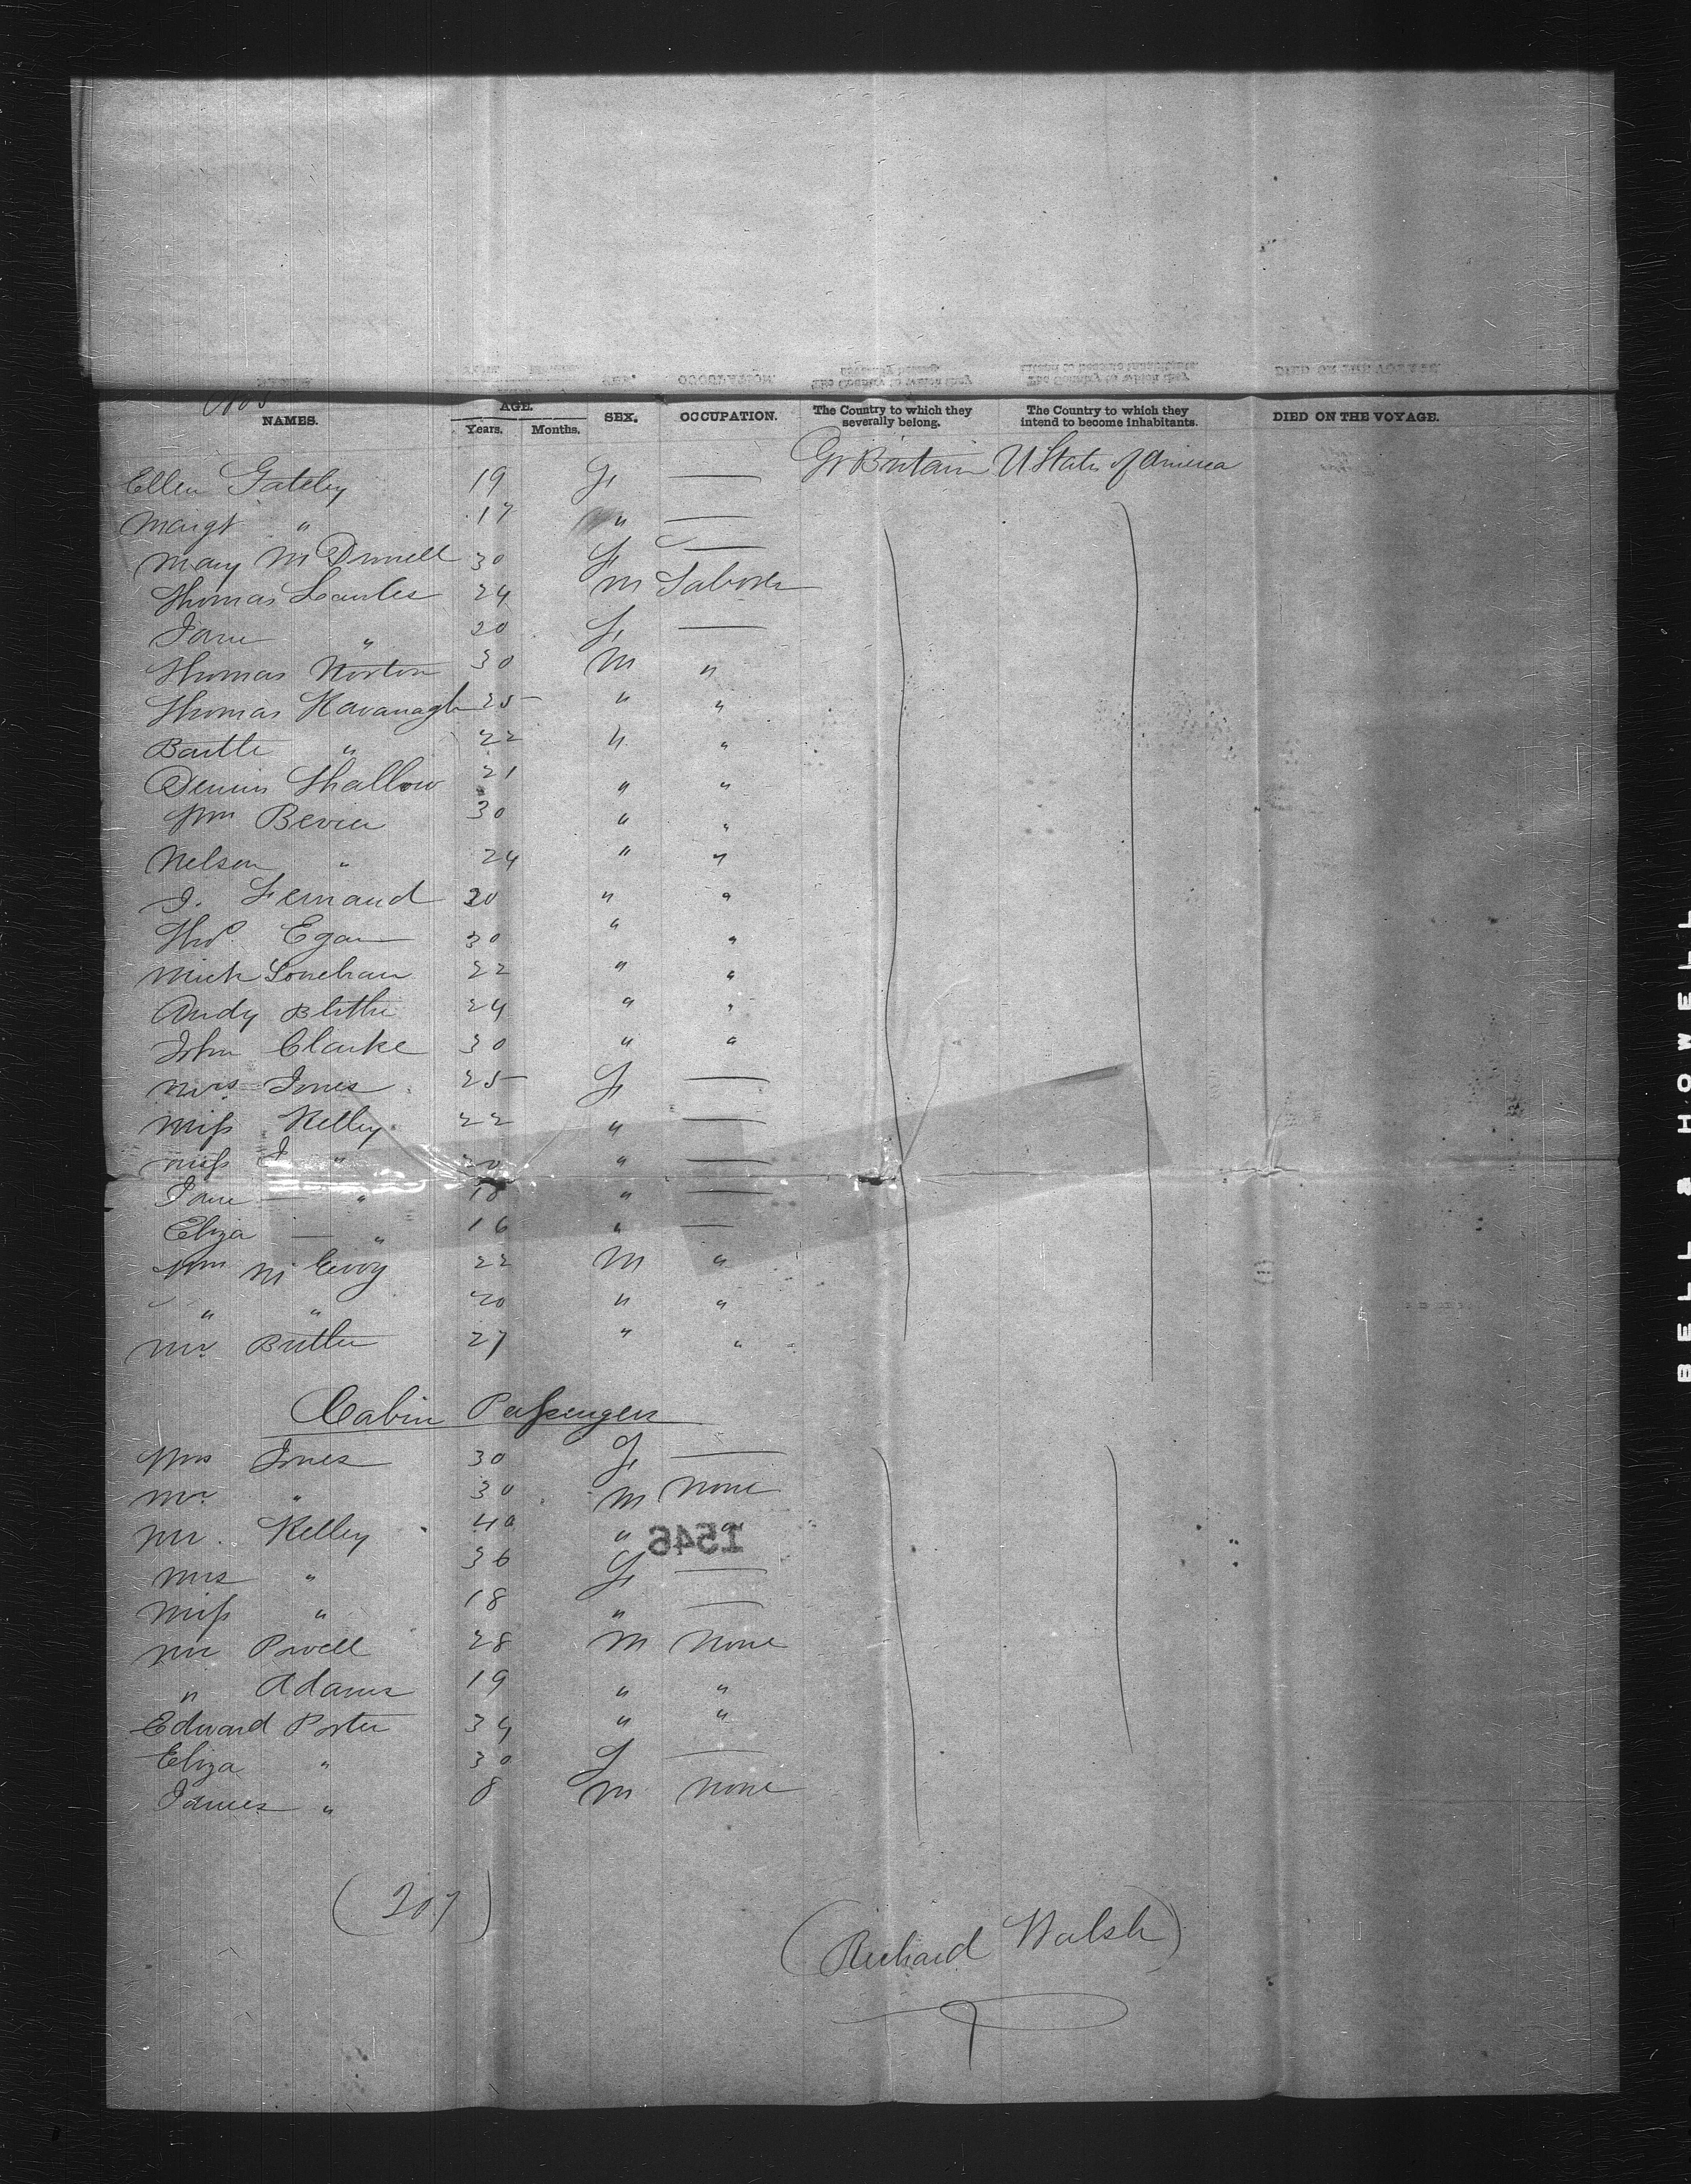 NAMES. AGE. Years. Months. SEX. OCCUPATION. The Country to which they severally belong. The Country to which they intend to become inhabitants. DIED ON THE VOYAGE.
Ellen Gateby 19 F — Gt Britain U States of America
Margt " 17 " —
Mary McDonnell 30 F —
Thomas Lawles 24 M Laborer
Jane " 20 F —
Thomas Norton 30 M "
Thomas Kavanagh 25 " "
Bartle " 22 " "
Dennis Shallow 21 " "
Wm Bevier 30 " "
Nelson " 24 " "
J. Fernand 30 " "
Thos. Egan 30 " "
Mich Lonehan 22 " "
Andy Blithe 24 " "
John Clarke 30 " "
Mrs. Jones 25 F —
Miss Kelley 22 " —
Miss J " 20 " —
Jane — " 18 " —
Eliza — " 16 " —
Wm McEvoy 22 M "
" " 20 " "
Mr. Butler 27 " "
Cabin Passengers
Mrs Jones 30 F —
Mr. " 30 M None
Mr. Kelley 40 " "
1546
Mrs " 36 F —
Miss " 18 " —
Mr Powell 28 M None
" Adams 19 " "
Edward Porter 34 " "
Eliza " 30 F —
James " 8 M None
(207)
(Richard Walsh)
BELL & HOWELL